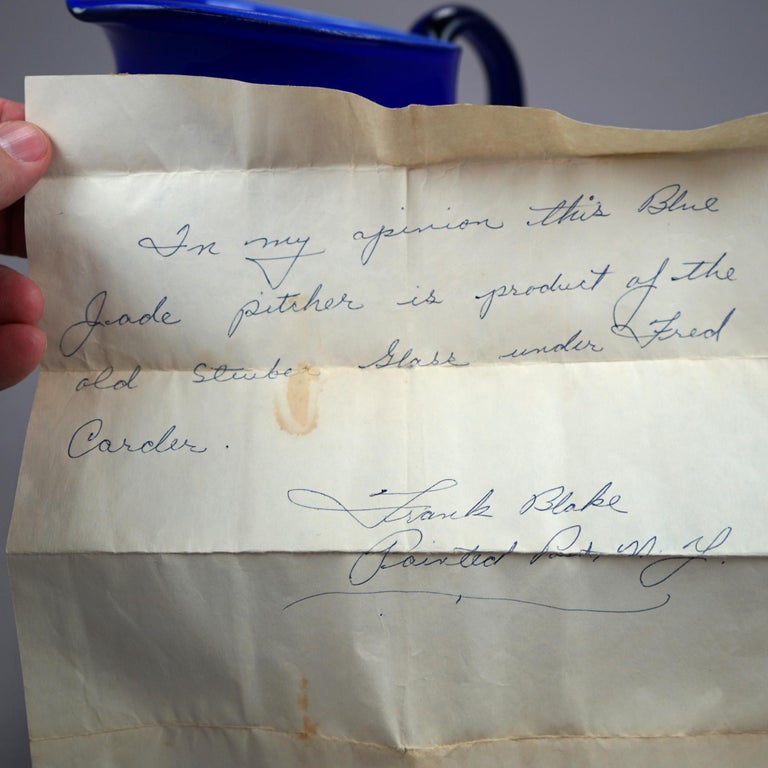 In my opinion this Blue
Jade pitcher is product of the
old Steuben Glass under Fred
Carder.
Frank Blake
Painted Post, N.Y.